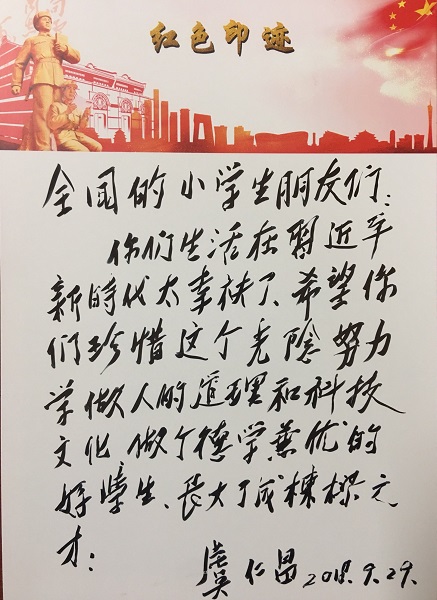 红色印迹
全国的小学生朋友们：
你们生活在習近平
新時代太幸袂了、希望你
们珍惜这个光陰努力
学做人的道理和科技
文化、做个德学兼优的
好学生、長大了成栋樑之
才：
虞仁昌 2018.9.29.